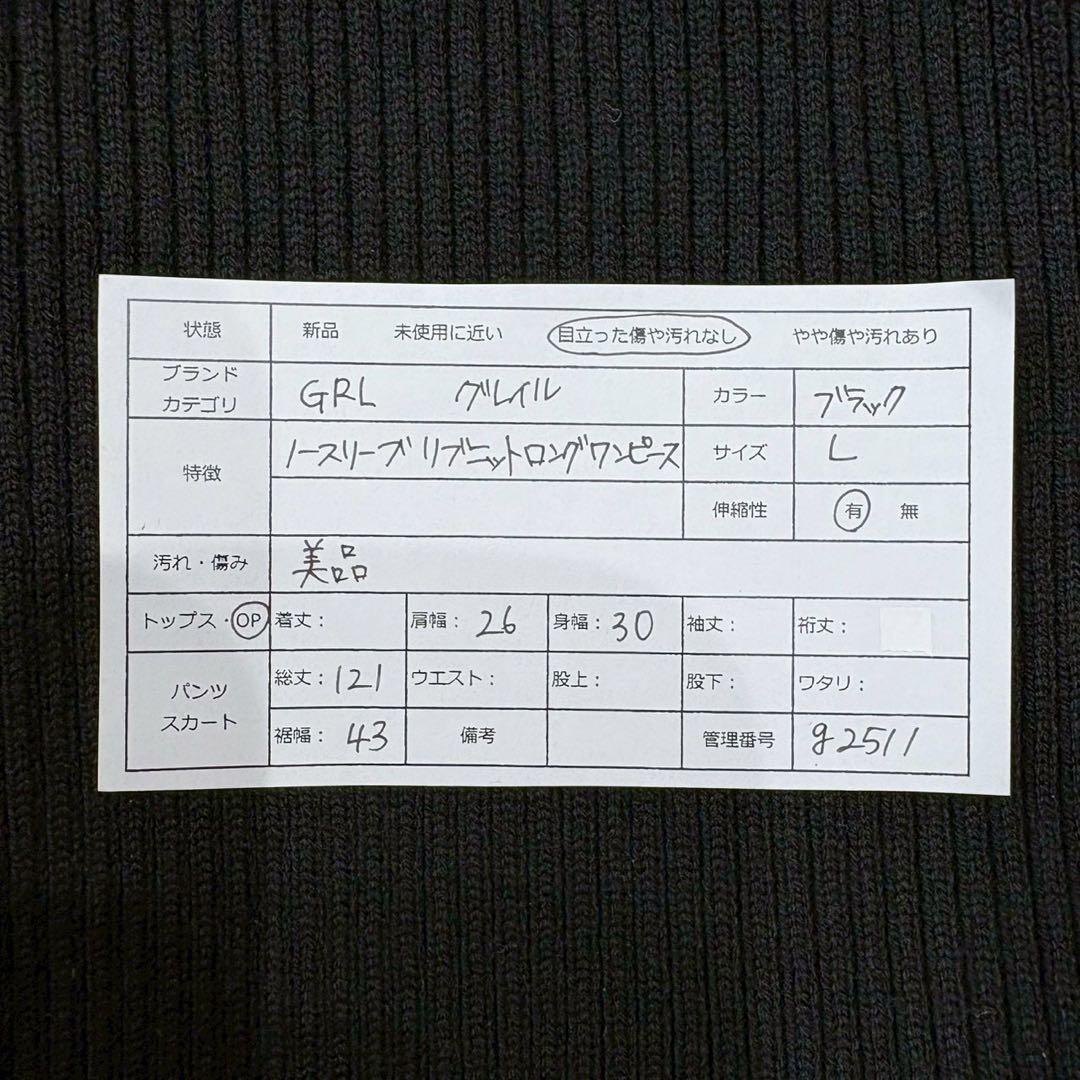 状態 新品 未使用に近い 目立った傷や汚れなし やや傷や汚れあり
ブランド カテゴリ GRL グレイル カラー ブラック
特徴 ノースリーブリブニットロングワンピース サイズ L
伸縮性 有 無
汚れ・傷み 美品
トップス・OP 着丈： 肩幅：26 身幅：30 袖丈： 裄丈：
パンツ スカート 総丈：121 ウエスト： 股上： 股下： ワタリ：
裾幅：43 備考 管理番号 g2511